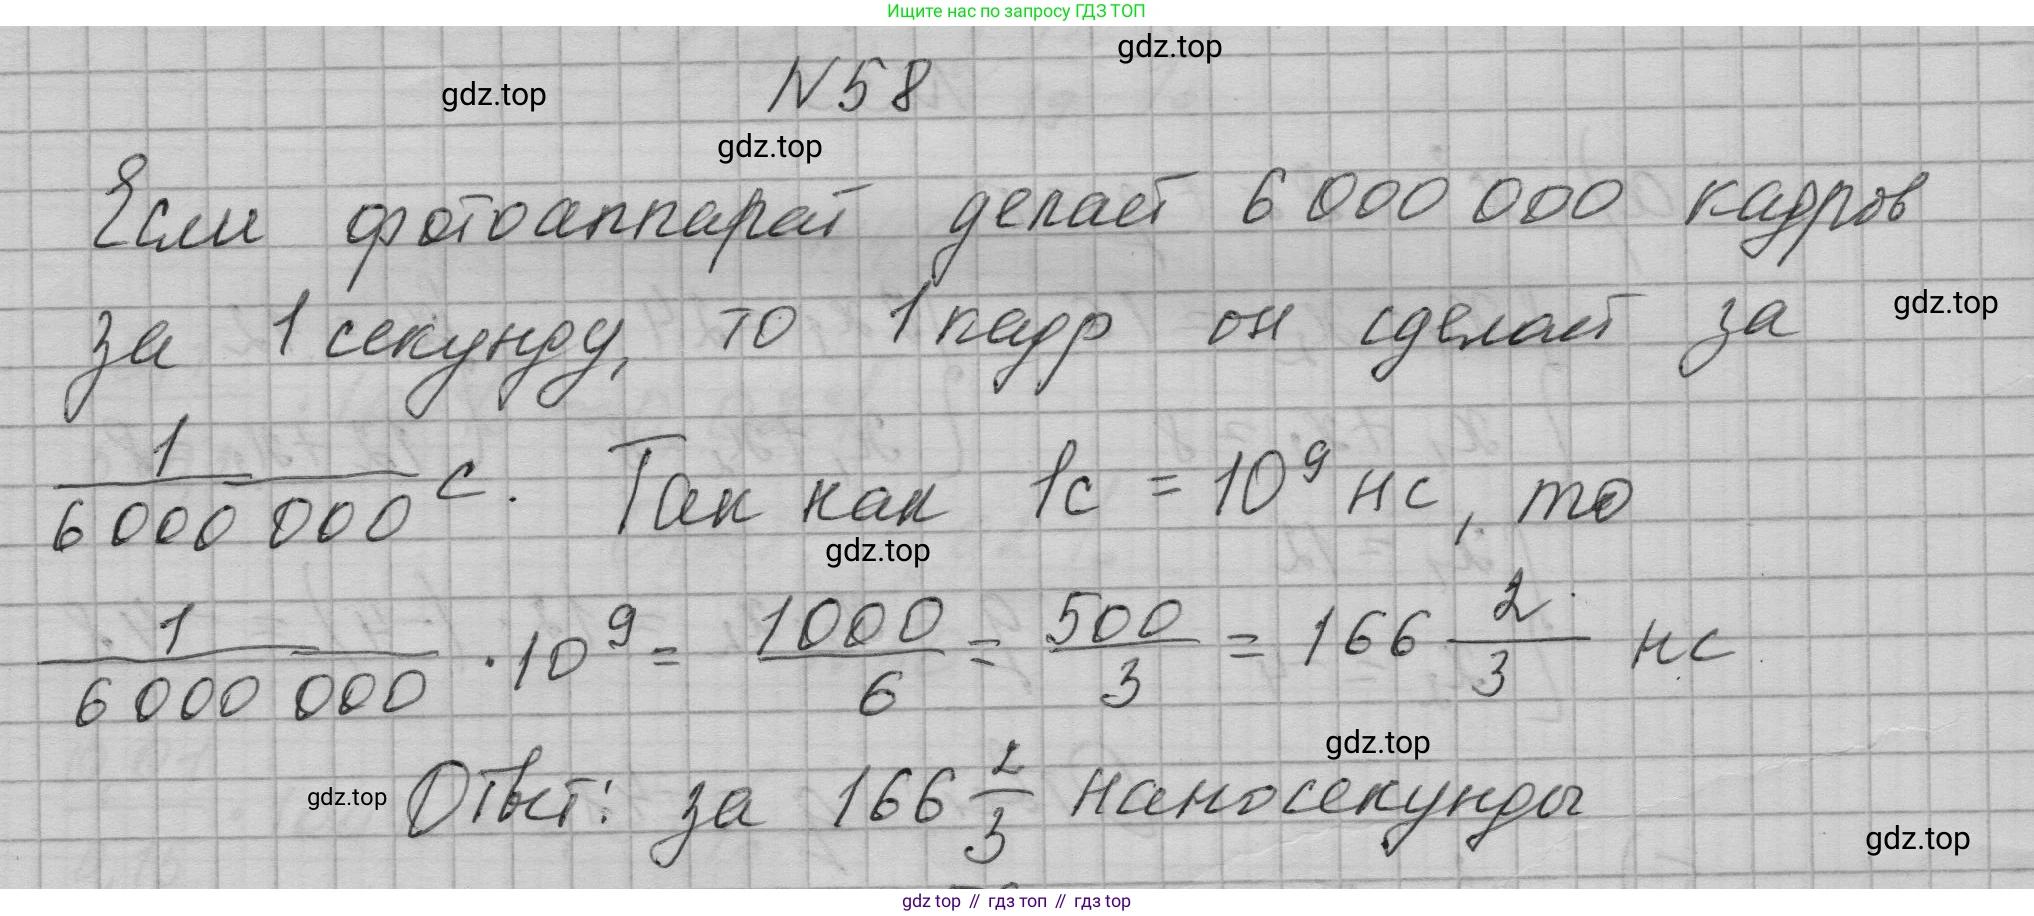 Ищите нас по запросу ГДЗ ТОП
gdz.top
N58
gdz.top
gdz.top
Если фотоаппарат делает 6 000 000 кадров
за 1 секунду, то 1 кадр он сделает за
gdz.top
1/6 000 000 с. Так как 1с = 10⁹ нс, то
gdz.top
1/6 000 000 · 10⁹ = 1000/6 = 500/3 = 166 2/3 нс
gdz.top
Ответ: за 166 2/3 наносекунды
gdz.top
gdz.top
gdz top // гдз топ // гдз top